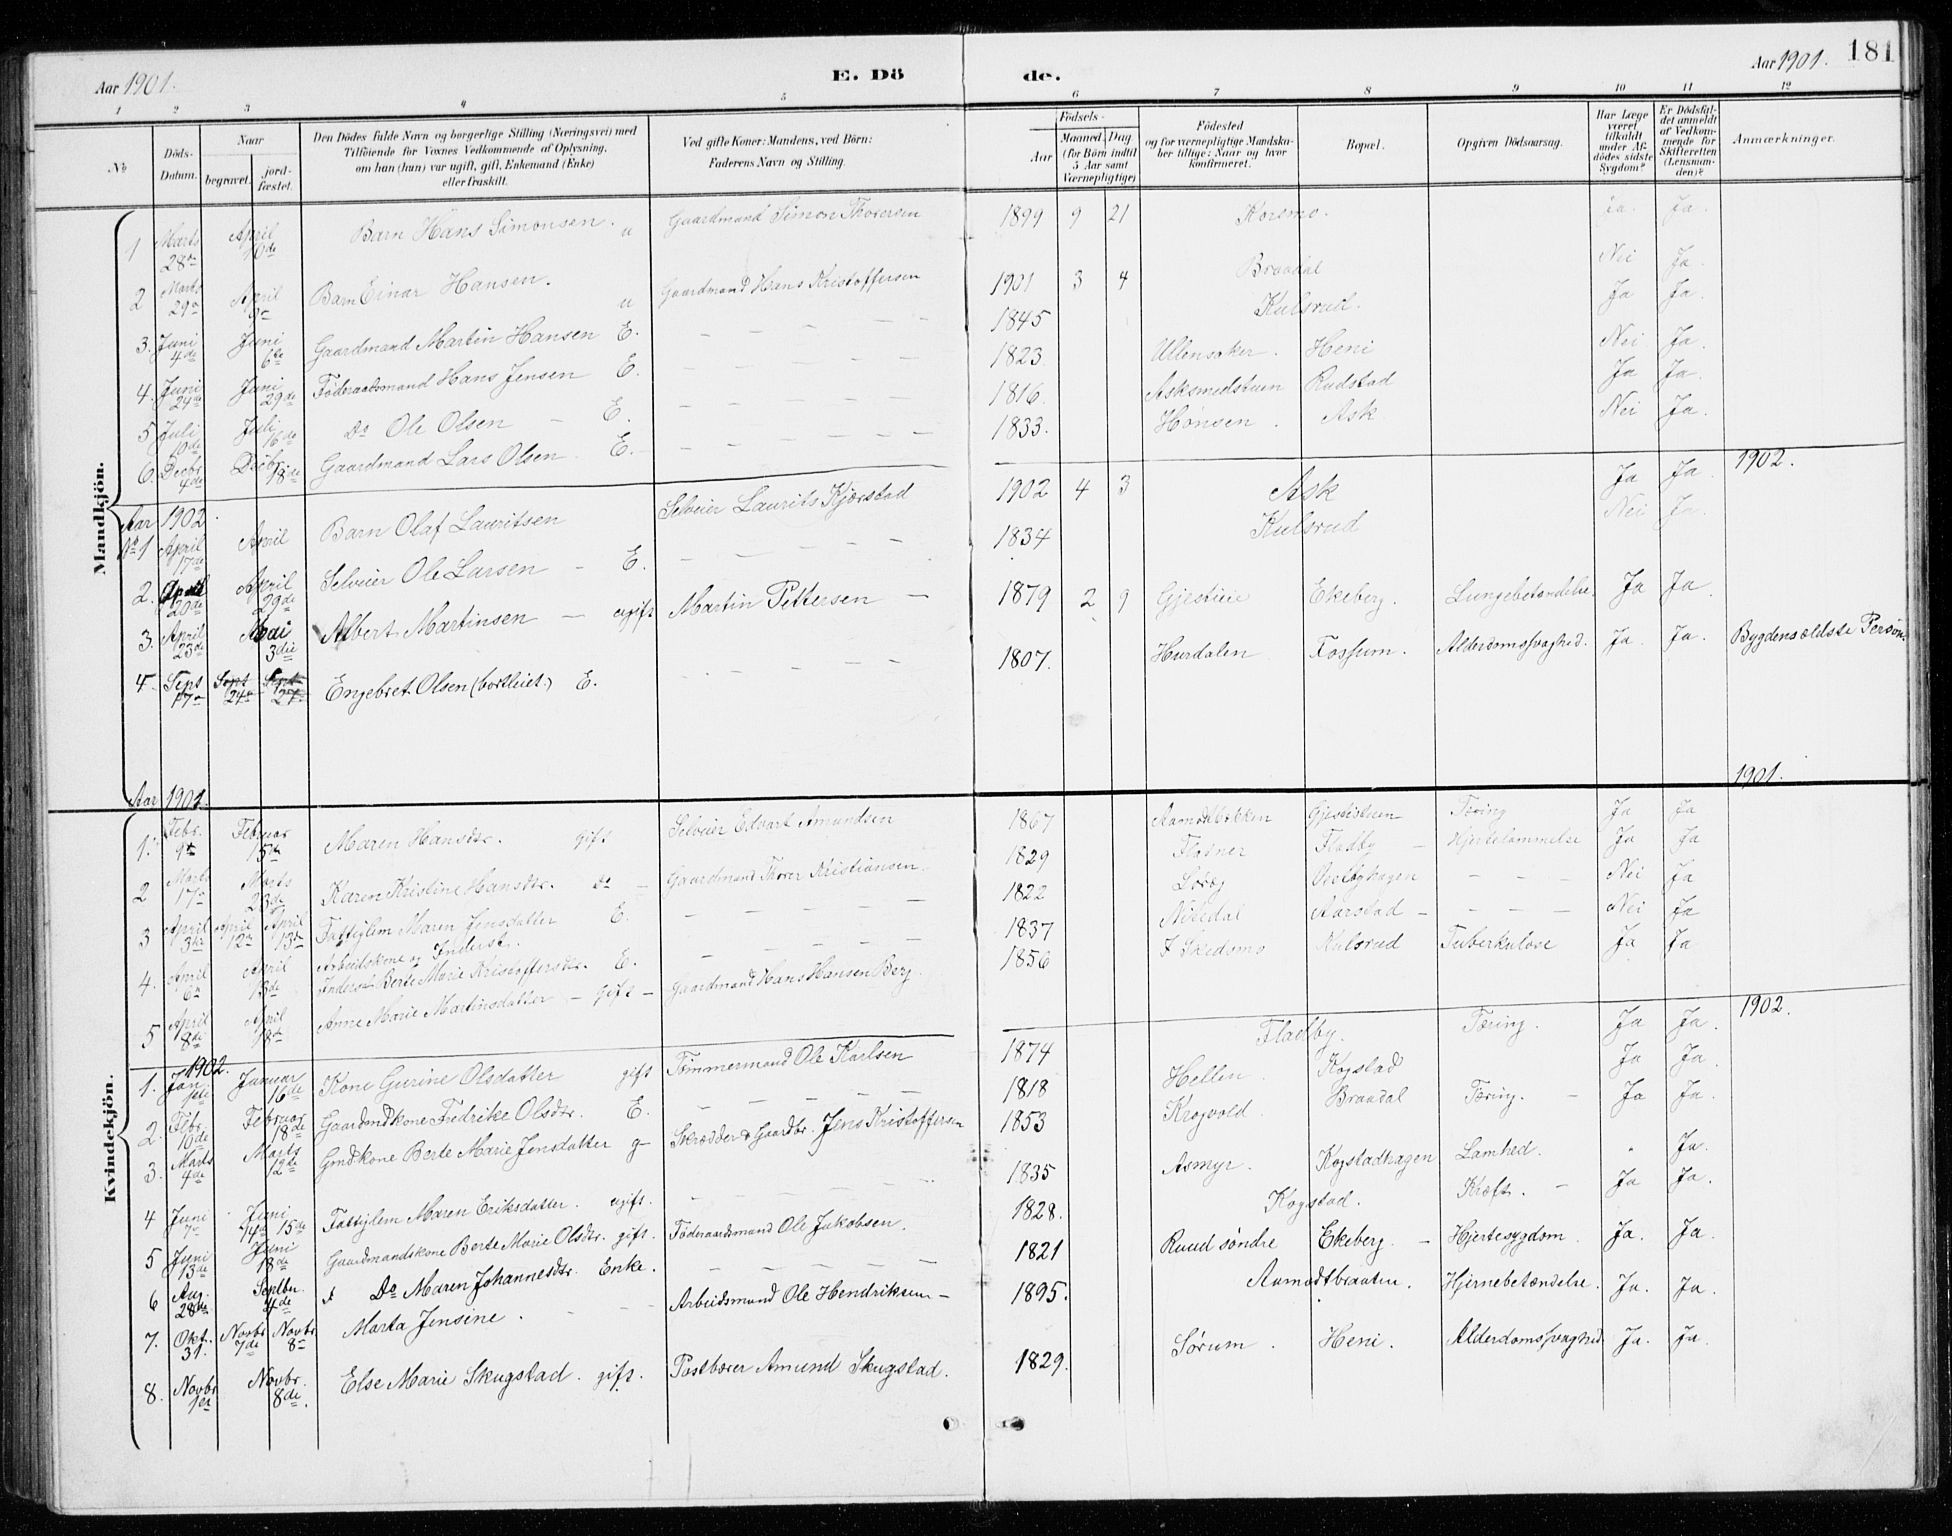 Aar 1901.
E. Dö
de.
Aar 1901.
181
1 2 3 4 5 6 7 8 9 10 11 12
No
Döds-Datum.
Naar
begravet.
jord-fæstet.
Den Dödes fulde Navn og borgerlige Stilling (Næringsvei) med
Tilföiende for Voxnes Vedkommende af Oplysning,
om han (hun) var ugift, gift, Enkemand (Enke)
eller fraskilt.
Ved gifte Koner: Mandens, ved Börn:
Faderens Navn og Stilling.
Födsels-
Aar
Maaned. Dag
(for Börn indtil
5 Aar samt
Værnepligtige)
Födested
og for værnepligtige Mandska-
ber tillige: Naar og hvor
konfirmeret.
Bopæl.
Opgiven Dödsaarsag.
Har Læge
været
tilkaldt
under Af-
dödes sidste
Sygdom?
Er Dödsfal-
det anmeldt
af Vedkom-
mende for
Skifteretten
(Lensman-
den)?
Anmærkninger.
Mandkjön.
1 Marts 28de April 10de Barn Hans Simonsen. u Gaardmand Simon Thoresen 1899 9 21 Korsmo. Ja. Ja.
2 Marts 29 April Barn Einar Hansen. u Gaardmand Hans Kristoffersen 1901 3 4 Braadal Nei Ja.
3. Juni 4de Juni 6te Gaardmand Martin Hansen E. 1845 Kulsrud. Ja Ja.
4. Juni 24de Juni 29de Föderaadsmand Hans Jensen E. 1823 Ullensaker. Heni Nei Ja.
5 Juli 10de Juli 16de Do Ole Olsen E. 1816. Asksmedstuen Rudstad Ja Ja.
6. Decbr 4de Decbr 18de Gaardmand Lars Olsen. E. 1833. Hönsen. Ask Nei Ja.
Aar 1902.
1902.
No 1 April 17de April Barn Olaf Lauritsen Selveier Laurits Kjærstad 1902 4 3 Ask Ja Ja.
2. April 20de April 29de Selveier Ole Larsen E. 1834 Kulsrud Nei Ja.
3. April 23de Mai 3die Albert Martinsen ugift Martin Pettersen 1879 2 9 Gjestiie Ekeberg. Lungebetændelse. Ja Ja.
4. Sept 17 Sept 24 Sept 27 Engebret Olsen (bortleiet.) E. 1807. Hurdalen Fossum. Alderdomssvaghed. Ja Ja. Bygdens ældste Person.
Aar 1901.
1901.
Kvindekjön.
1. Febr. 9de Februar 15de Maren Hansdtr. gift Selveier Edvart Amundsen 1867 Aamodtbakken Gjestistuen Tæring Ja Ja
2 Marts 17 Marts 23de Karen Kristine Hansdtr. do Gaardmand Thorer Kristiansen. 1829 Fladner Fladby Hjertelammelse Ja Ja
3 April 3die April 12 April 13de Fattiglem Maren Jensdatter E. 1822 Vestbyhagen Nei Ja
4. April 6te April 13de Arbeidskone og Inderst. Berte Marie Kristoffersdtr. E. 1837 Nitedal Aarstad Nei Ja
5 April 8de April 18de Anne Marie Martinsdatter gift Gaardmand Hans Hansen Berg. 1856 I Skedsmo Kulsrud Tuberkulose Ja Ja
1902.
1902.
1. Jan. Januar 16de Kone Gurine Olsdatter gift Tömmermand Ole Karlsen 1874 Fladby. Tæring. Ja Ja.
2. Febr. 10de Februar 18de Gaardmdkone Fedrike Olsdtr. E. 1818 Hellen. Kogstad Ja Ja.
3. Marts 4de Marts 12te Gmdkone Berte Marie Jensdatter g Skrædder & Gaardbr. Jens Kristoffersen 1853 Krogvold. Braadal Tæring. Ja Ja.
4 Juni 7 Juni 14de 15de Fattiglem Maren Eriksdatter. ugift. 1835 Asmyr. Kogstadhagen Lamhed. " Ja.
5 Juni 13de Juni 18de Gaardmandskone Berte Marie Olsdtr. gift. Föderaadsmand Ole Jakobsen. 1828. Kogstad. Kræft. Ja Ja.
6 Aug. 28de Septbr 4de Do Maren Johannesdtr. Enke. 1821 Ruud söndre Ekeberg. Hjertesygdom. Ja. Ja.
7. Okt. 31. Novbr 7de Novbr 8 Marta Jensine. Arbeidsmand Ole Hendriksen 1895. Aamodtbraaten. Hjernebetændelse. Ja. Ja.
8. Novbr. 1ste Novbr. 8de. Else Marie Skugstad. gift. Postbærer Amund Skugstad. 1829. Sörum. Heni. Alderdomssvaghed Ja. Ja.